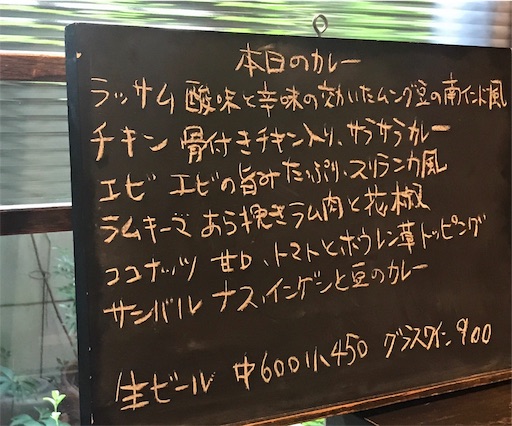 本日のカレー
ラッサム 酸味と辛味の効いたムング豆の南インド風
チキン 骨付きチキン入り、サラサラカレー
エビ エビの旨みたっぷり、スリランカ風
ラムキーマ あら挽きラム肉と花椒
ココナッツ 甘口、トマトとホウレン草トッピング
サンバル ナス、インゲンと豆のカレー
生ビール 中600 小450 グラスワイン 900